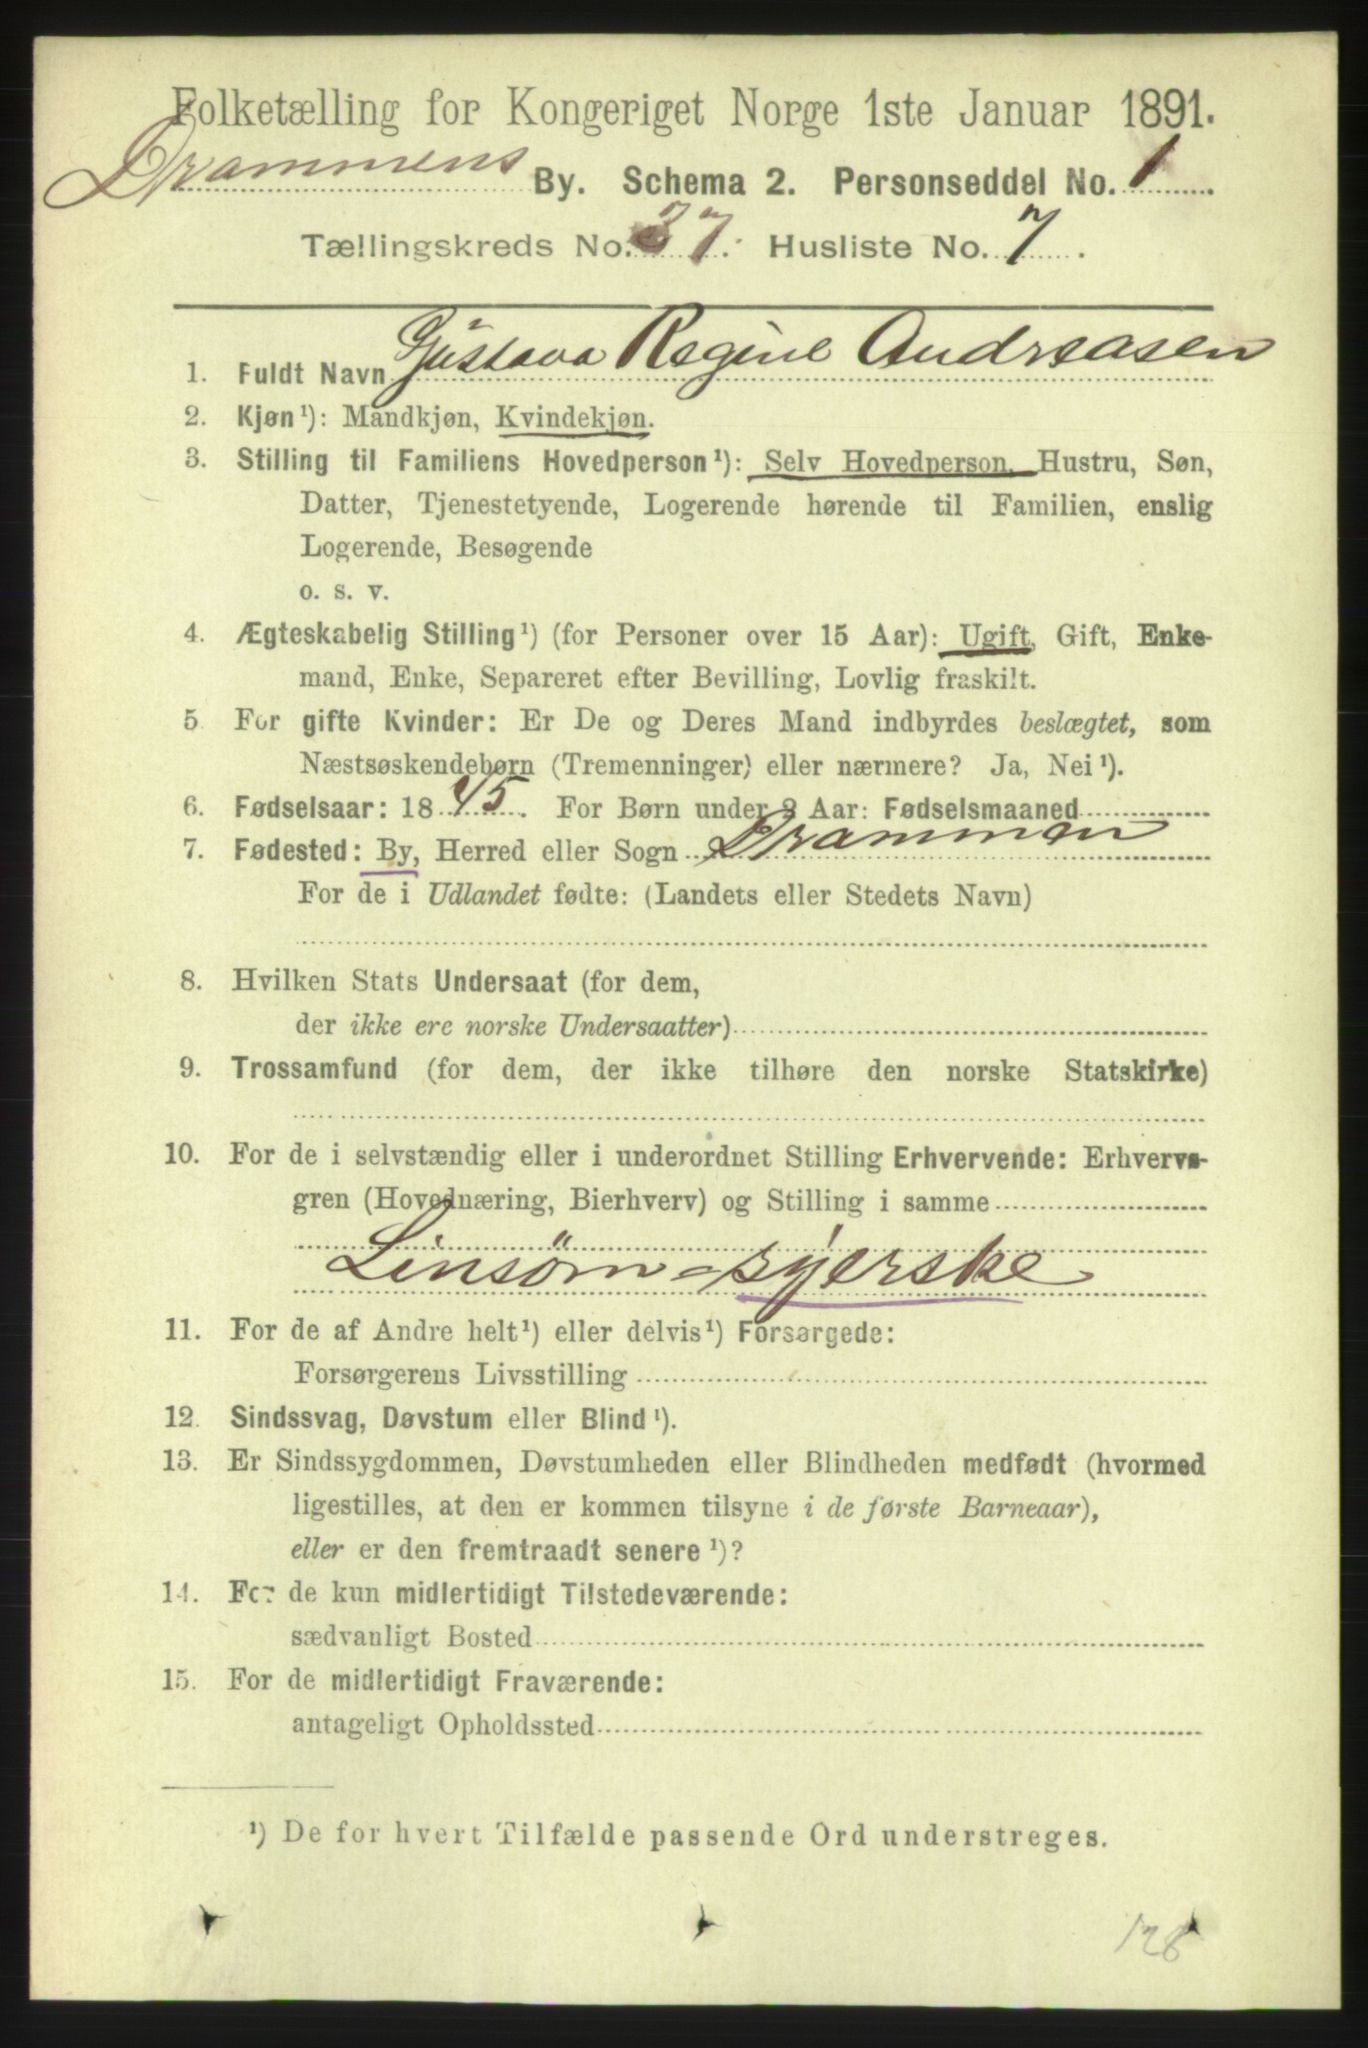 Folketælling for Kongeriget Norge 1ste Januar 1891.
Drammens By. Schema 2. Personseddel No. 1
Tællingskreds No. 37. Husliste No. 7.
1. Fuldt Navn Gustava Regine Andreasen
2. Kjøn¹): Mandkjøn, Kvindekjøn.
3. Stilling til Familiens Hovedperson¹): Selv Hovedperson, Hustru, Søn,
Datter, Tjenestetyende, Logerende hørende til Familien, enslig
Logerende, Besøgende
o. s. v.
4. Ægteskabelig Stilling¹) (for Personer over 15 Aar): Ugift, Gift, Enke-
mand, Enke, Separeret efter Bevilling, Lovlig fraskilt.
5. For gifte Kvinder: Er De og Deres Mand indbyrdes beslægtet, som
Næstsøskendebørn (Tremenninger) eller nærmere? Ja, Nei¹).
6. Fødselsaar: 1845. For Børn under 2 Aar: Fødselsmaaned
7. Fødested: By, Herred eller Sogn Drammen
For de i Udlandet fødte: (Landets eller Stedets Navn)
8. Hvilken Stats Undersaat (for dem,
der ikke ere norske Undersaatter)
9. Trossamfund (for dem, der ikke tilhøre den norske Statskirke)
10. For de i selvstændig eller i underordnet Stilling Erhvervende: Erhvervs-
gren (Hovednæring, Bierhverv) og Stilling i samme
Linsøm-syerske
11. For de af Andre helt¹) eller delvis¹) Forsørgede:
Forsørgerens Livsstilling
12. Sindssvag, Døvstum eller Blind¹).
13. Er Sindssygdommen, Døvstumheden eller Blindheden medfødt (hvormed
ligestilles, at den er kommen tilsyne i de første Barneaar),
eller er den fremtraadt senere¹)?
14. For de kun midlertidigt Tilstedeværende:
sædvanligt Bosted
15. For de midlertidigt Fraværende:
antageligt Opholdssted
¹) De for hvert Tilfælde passende Ord understreges.
128